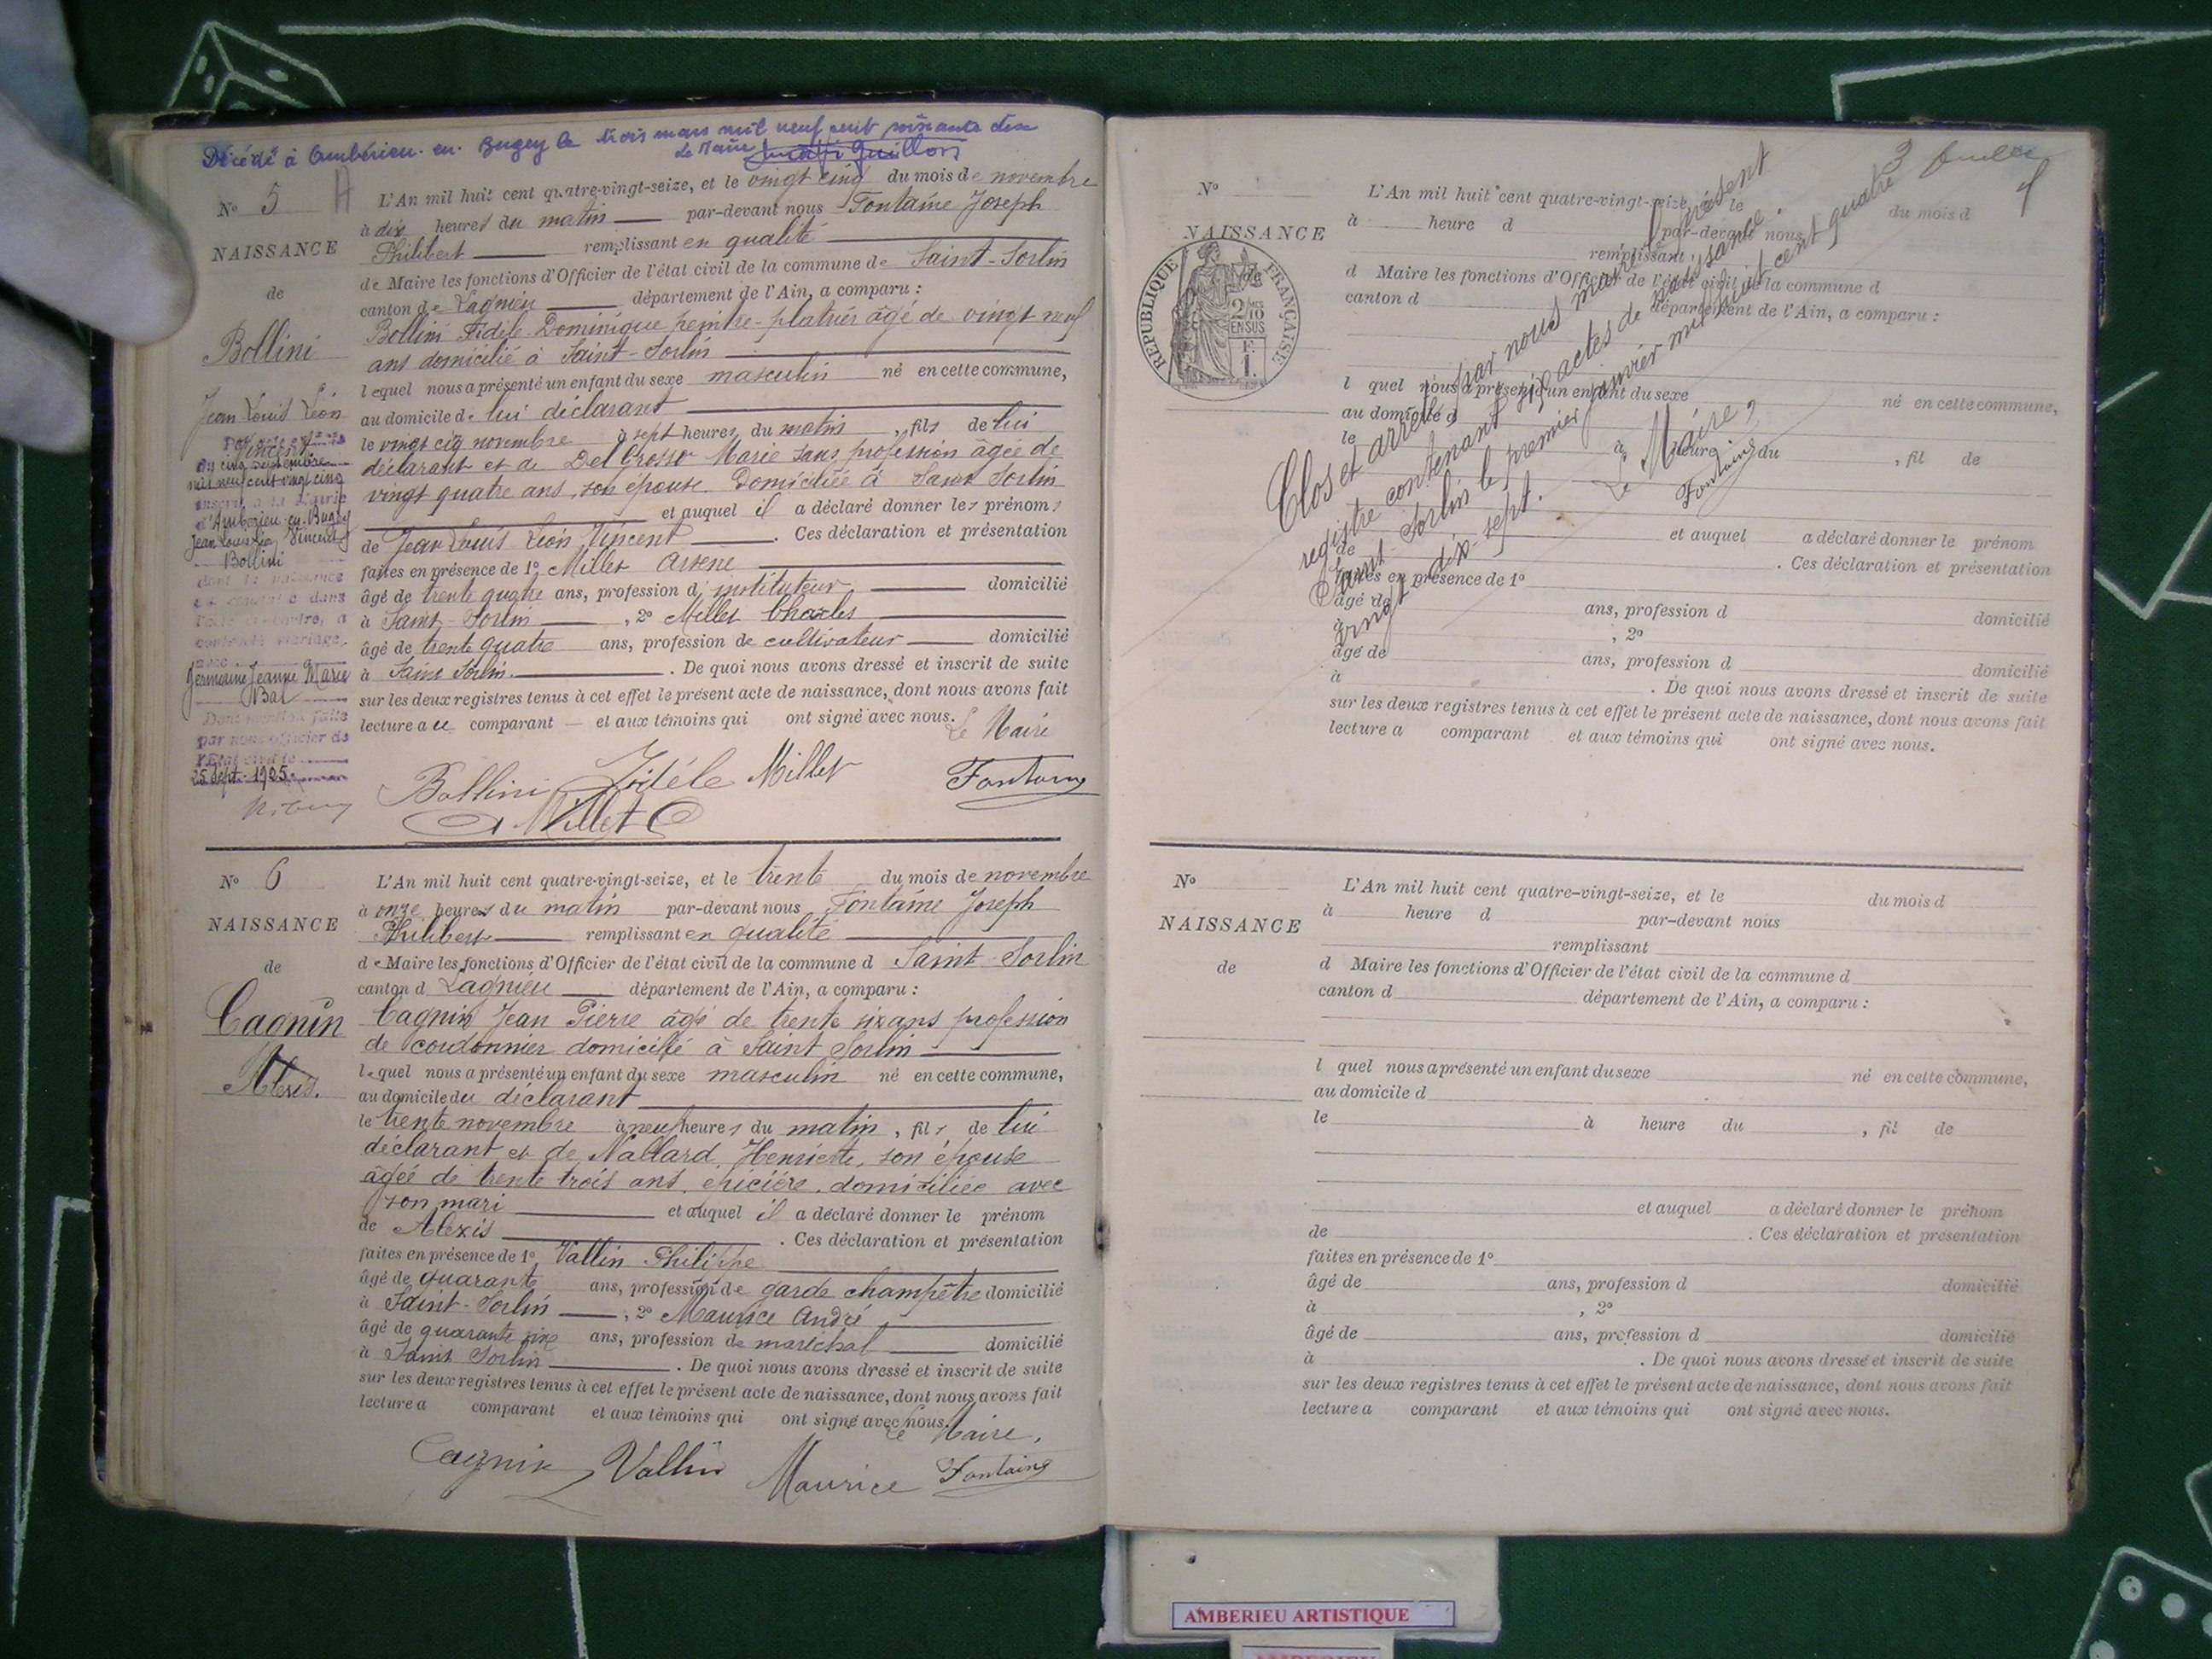 Décédé à Ambérieu-en-Bugey le trois mars mil neuf cent soixante dix
Le Maire
N° 5
NAISSANCE
de
Bollini
Jean Louis Léon
Vincent
du cinq septembre
mil neuf cent vingt cinq
inscrit à la Mairie
d'Ambérieu-en-Bugey
Jean Louis Léon Vincent
Bollini
dont la naissance
est constatée dans
l'acte ci-contre, a
contracté mariage
avec
Germaine Jeanne Marie
Bal
Dont mention faite
par nous officier de
l'Etat civil le
25 Sept. 1925
L'An mil huit cent quatre-vingt-seize, et le vingt cinq du mois de novembre
à dix heures du matin par-devant nous Fontaine Joseph
Philibert remplissant en qualité
de Maire les fonctions d'Officier de l'état civil de la commune de Saint-Sorlin
canton de Lagnieu département de l'Ain, a comparu :
Bollini Fidèle Dominique peintre-platrier âgé de vingt neuf
ans domicilié à Saint-Sorlin
lequel nous a présenté un enfant du sexe masculin né en cette commune,
au domicile de lui déclarant
le vingt cinq novembre à sept heures du matin, fils de lui
déclarant et de Del Grosso Marie sans profession âgée de
vingt quatre ans, son épouse. Domiciliée à Saint Sorlin
et auquel il a déclaré donner les prénoms
de Jean Louis Léon Vincent. Ces déclaration et présentation
faites en présence de 1° Millet Arsène
âgé de trente quatre ans, profession d'instituteur domicilié
à Saint-Sorlin, 2° Millet Charles
âgé de trente quatre ans, profession de cultivateur domicilié
à Saint Sorlin. De quoi nous avons dressé et inscrit de suite
sur les deux registres tenus à cet effet le présent acte de naissance, dont nous avons fait
lecture au comparant et aux témoins qui ont signé avec nous. Le Maire
Bollini Fidèle Millet Fontaine
Millet C
N° 6
NAISSANCE
de
Cagnin
Alexis.
L'An mil huit cent quatre-vingt-seize, et le trente du mois de novembre
à onze heures du matin par-devant nous Fontaine Joseph
Philibert remplissant en qualité
de Maire les fonctions d'Officier de l'état civil de la commune d Saint-Sorlin
canton d Lagnieu département de l'Ain, a comparu :
Cagnin Jean Pierre âgé de trente six ans profession
de cordonnier domicilié à Saint Sorlin
lequel nous a présenté un enfant du sexe masculin né en cette commune,
au domicile du déclarant
le trente novembre à neuf heures du matin, fils de lui
déclarant et de Nallard Henriette, son épouse
âgée de trente trois ans, épicière, domiciliée avec
son mari et auquel il a déclaré donner le prénom
de Alexis. Ces déclaration et présentation
faites en présence de 1° Vallin Philippe
âgé de quarante ans, profession de garde champêtre domicilié
à Saint-Sorlin, 2° Maurice André
âgé de quarante six ans, profession de maréchal domicilié
à Saint Sorlin. De quoi nous avons dressé et inscrit de suite
sur les deux registres tenus à cet effet le présent acte de naissance, dont nous avons fait
lecture a comparant et aux témoins qui ont signé avec nous. Le Maire,
Cagnin Vallin Maurice Fontaine
N°
NAISSANCE
RÉPUBLIQUE FRANÇAISE
2/10 EN SUS
F. 1.
L'An mil huit cent quatre-vingt-seize, le du mois d
à heure d par-devant nous
remplissant
d Maire les fonctions d'Officier de l'état civil de la commune d
canton d département de l'Ain, a comparu :
l quel nous a présenté un enfant du sexe né en cette commune,
au domicile d
le à heure du , fil de
et auquel a déclaré donner le prénom
de . Ces déclaration et présentation
faites en présence de 1°
âgé de ans, profession d domicilié
à , 2°
âgé de ans, profession d domicilié
à . De quoi nous avons dressé et inscrit de suite
sur les deux registres tenus à cet effet le présent acte de naissance, dont nous avons fait
lecture a comparant et aux témoins qui ont signé avec nous.
Clos et arrêté par nous maire le présent
registre contenant six actes de naissance.
Saint-Sorlin le premier janvier mil huit cent quatre
vingt dix-sept.
Le Maire,
Fontaine
N°
NAISSANCE
de
L'An mil huit cent quatre-vingt-seize, et le du mois d
à heure d par-devant nous
remplissant
d Maire les fonctions d'Officier de l'état civil de la commune d
canton d département de l'Ain, a comparu :
l quel nous a présenté un enfant du sexe né en cette commune,
au domicile d
le à heure du , fil de
et auquel a déclaré donner le prénom
de . Ces déclaration et présentation
faites en présence de 1°
âgé de ans, profession d domicilié
à , 2°
âgé de ans, profession d domicilié
à . De quoi nous avons dressé et inscrit de suite
sur les deux registres tenus à cet effet le présent acte de naissance, dont nous avons fait
lecture a comparant et aux témoins qui ont signé avec nous.
AMBERIEU ARTISTIQUE
AMBERIEU